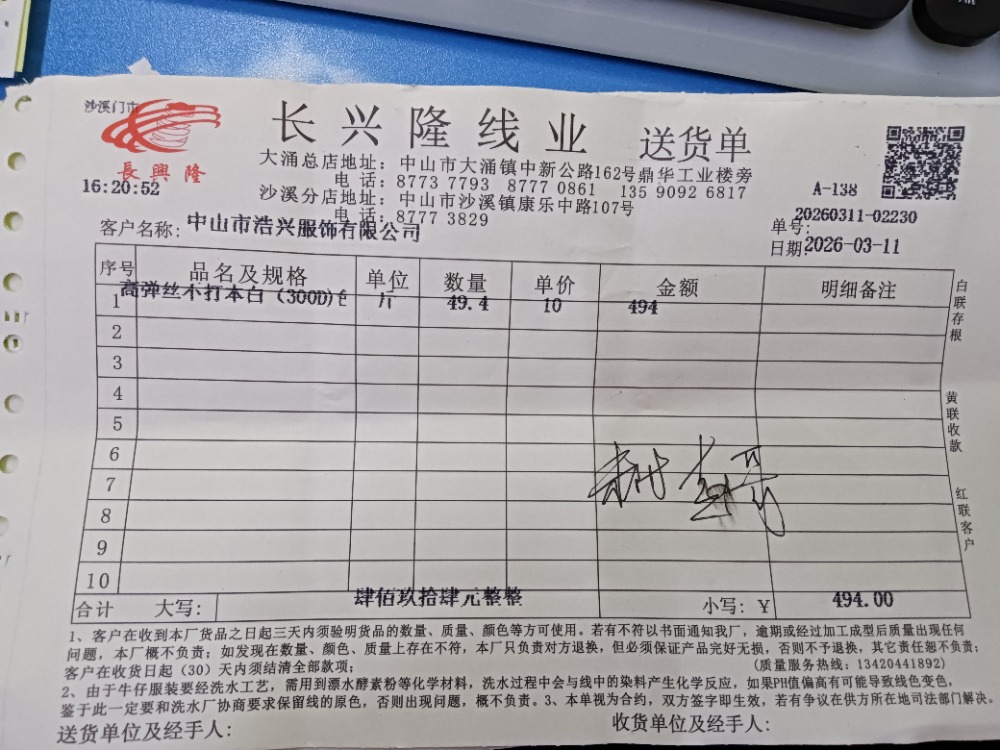 沙溪门市
長興隆
长兴隆线业 送货单
大涌总店地址：中山市大涌镇中新公路162号鼎华工业楼旁
电话：8773 7793 8777 0861 135 9092 6817
16:20:52
A-138
沙溪分店地址：中山市沙溪镇康乐中路107号
电话：8777 3829
单号：20260311-02230
客户名称：中山市浩兴服饰有限公司
日期：2026-03-11
序号 品名及规格 单位 数量 单价 金额 明细备注
1 高弹丝不打本白（300D） 斤 49.4 10 494
2
3
4
5
6
7
8
9
10
合计 大写： 肆佰玖拾肆元整整 小写：￥ 494.00
白联存根
黄联收款
红联客户
1、客户在收到本厂货品之日起三天内须验明货品的数量、质量、颜色等方可使用。若有不符以书面通知我厂，逾期或经过加工成型后质量出现任何
问题，本厂概不负责；如发现在数量、颜色、质量上存在不符，本厂只负责对方退换，但必须保证产品完好无损，否则不予退换，其它责任恕不负责；
客户在收货日起（30）天内须结清全部款项； (质量服务热线：13420441892)
2、由于牛仔服装要经洗水工艺，需用到漂水酵素粉等化学材料，洗水过程中会与线中的染料产生化学反应，如果PH值偏高有可能导致线色变色，
鉴于此一定要和洗水厂协商要求保留线的原色，否则出现问题，概不负责。3、本单视为合约，双方签字即生效，若有争议在供方所在地司法部门解决。
送货单位及经手人： 收货单位及经手人：